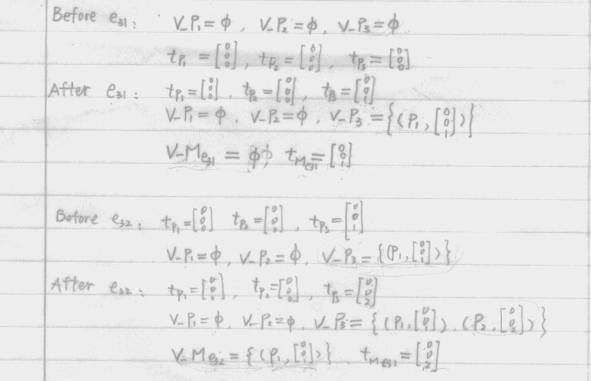 Before e31: V_P1 = ϕ, V_P2 = ϕ, V_P3 = ϕ
tP1 = [0 0 0], tP2 = [0 0 0], tP3 = [0 0 0]
After e31: tP1 = [0 0 0], tP2 = [0 0 0], tP3 = [0 0 1]
V_P1 = ϕ, V_P2 = ϕ, V_P3 = {(P1, [0 0 1])}
V_Me31 = ϕ, tMe31 = [0 0 1]
Before e32: tP1 = [0 0 0] tP2 = [0 0 0], tP3 = [0 0 1]
V_P1 = ϕ, V_P2 = ϕ, V_P3 = {(P1, [0 0 1])}
After e32: tP1 = [0 0 0], tP2 = [0 0 0], tP3 = [0 0 2]
V_P1 = ϕ, V_P2 = ϕ, V_P3 = {(P1, [0 0 1]), (P2, [0 0 2])}
V_Me32 = {(P1, [0 0 1])} tMe32 = [0 0 2]